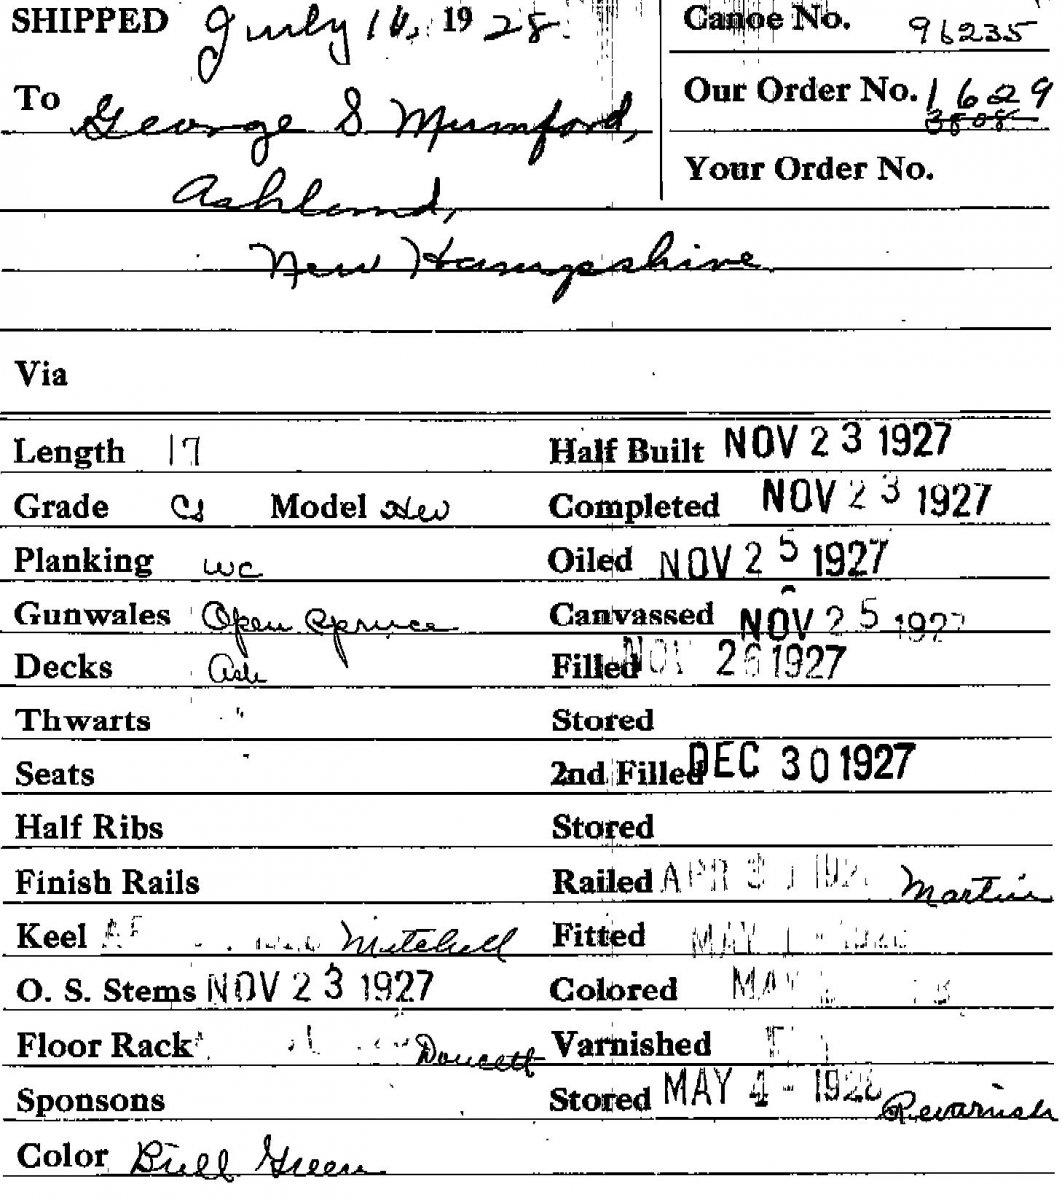 SHIPPED July 16, 1928. Canoe No. 96235
To George S. Mumford, Our Order No. 1629 3808
Ashland, Your Order No.
New Hampshire
Via
Length 17 Half Built NOV 23 1927
Grade CS Model Completed NOV 23 1927
Planking WC Oiled NOV 25 1927
Gunwales Open Spruce Canvassed NOV 25 1927
Decks Ash Filled NOV 26 1927
Thwarts " Stored
Seats 2nd Filled DEC 30 1927
Half Ribs Stored
Finish Rails Railed APR 192 Martin
Keel Mitchell Fitted MAY 1 - 1928
O. S. Stems NOV 23 1927 Colored MAY
Floor Rack Doucett Varnished
Sponsons Stored MAY 4 - 1928 Revarnish
Color Green